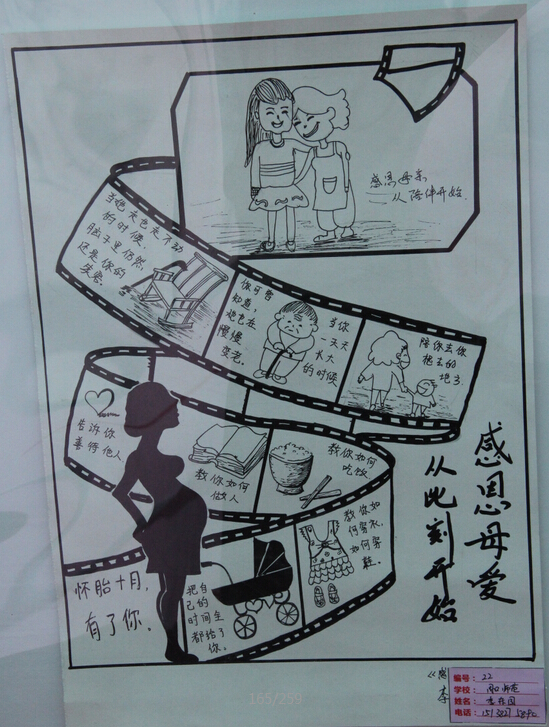 感恩母亲
从陪伴开始
的时候,
脑子里仍然
还是你的
失态。
你可曾
知道,
她也在
慢慢
变老。
当你
一天天
长大
的时候
陪你去你
想去的
地方
告诉你
善待他人
教你如何
做人
教你如何
吃饭
教你如
何穿衣,
如何穿
鞋。
怀胎十月,
有了你。
把自
己的
时间全
都给了
你。
感恩母爱
从此刻开始
165/259
编号: 22
学校:
姓名:
电话: